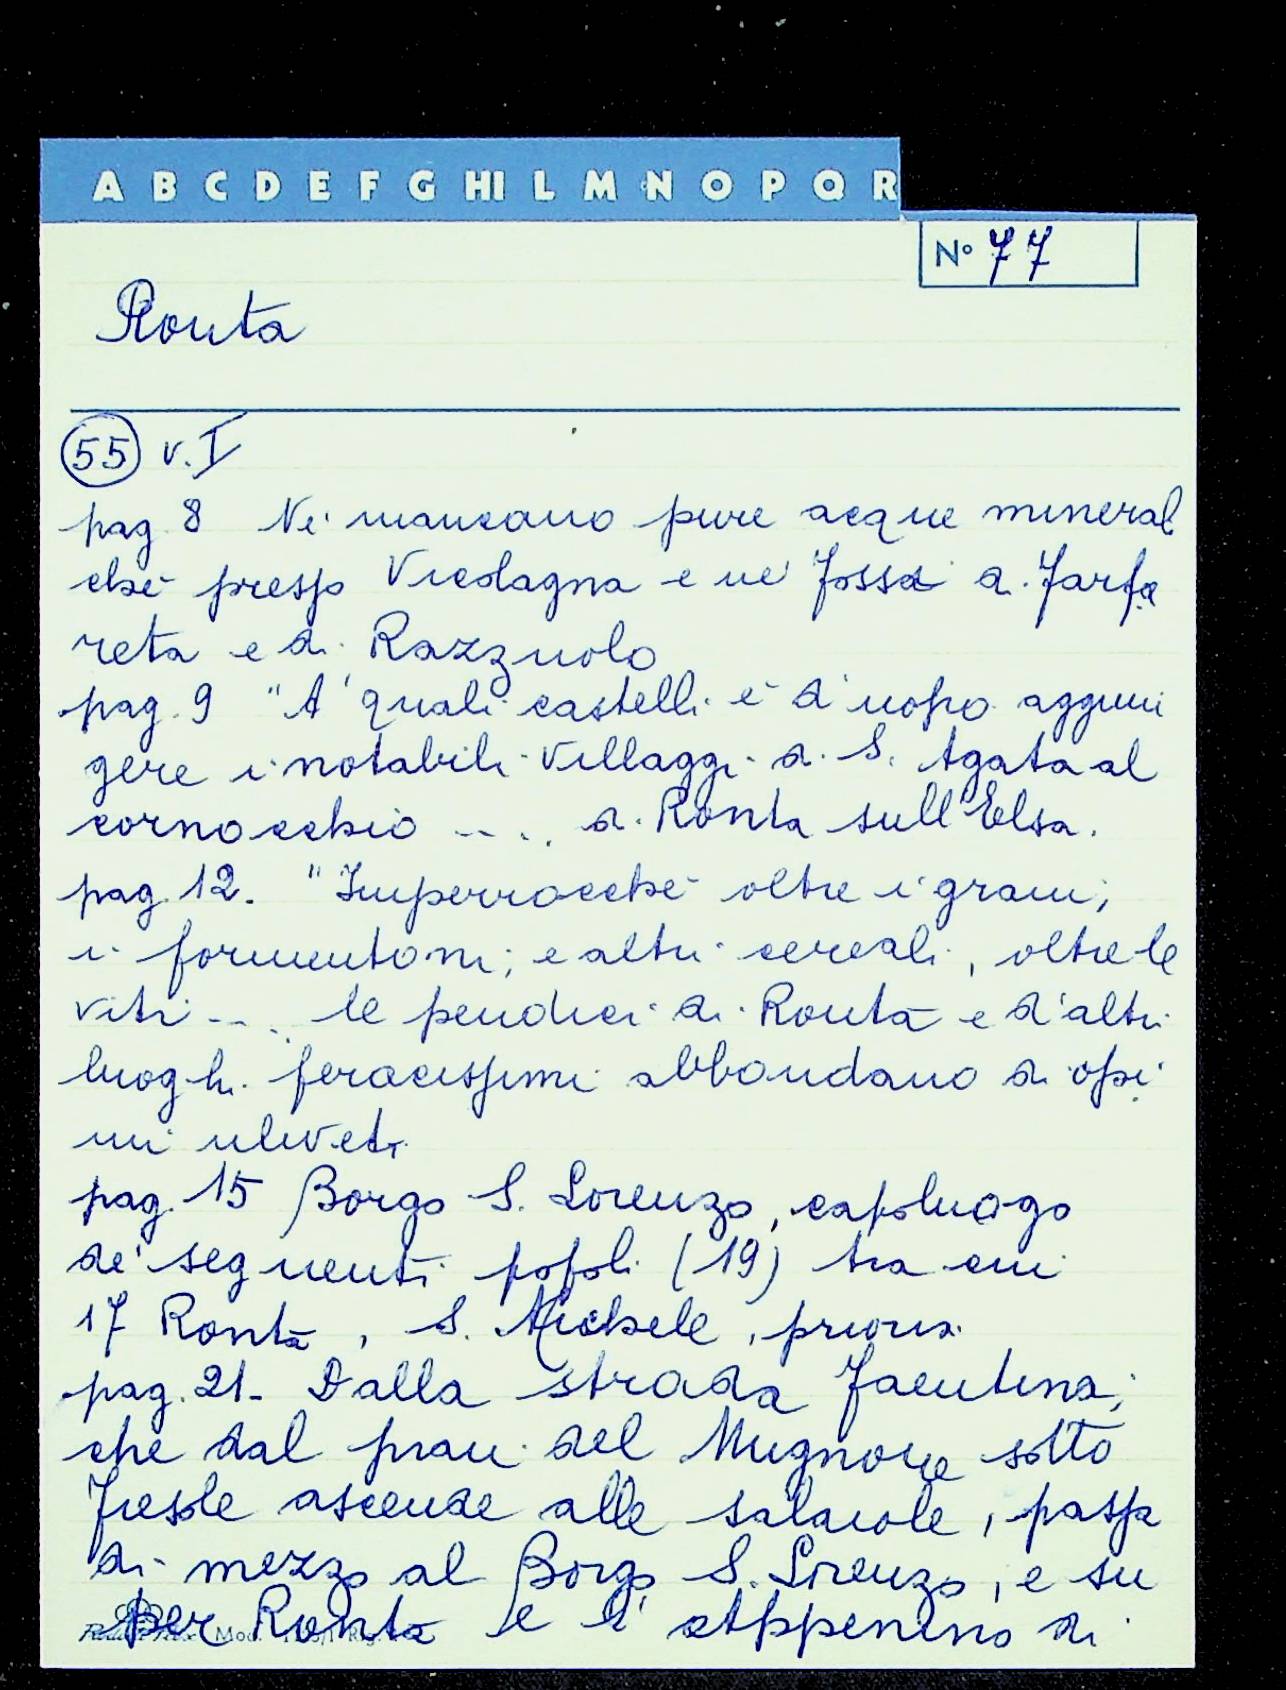 A B C D E F G HI L M N O P Q R
N° 77
Ronta
55 v. I
pag. 8 Né mancano pure acque minerali
che presso Vicolagna e ne' fossi di Farfe
reta e di Razzuolo
pag. 9 "A' quali castelli è d'uopo aggiun
gere i notabili villaggi di S. Agata al
cornocchio .... di Ronta sull'Elsa.
pag. 12. "Imperrocché oltre i grani,
i formentoni, e altri cereali, oltre le
viti .... le pendici di Ronta e d'altri
luoghi feracissimi abbondano di opi
mi uliveti
pag. 15 Borgo S. Lorenzo, capoluogo
de' seguenti popoli (19) tra cui
17 Ronta, S. Michele, prioria
pag. 21. Dalla strada Faentina,
che dal pian del Mugnone sotto
Fiesole ascende alle salaiole, passa
di mezzo al Borgo S. Lorenzo, e su
per Ronta e l'Appenino di
Mod.